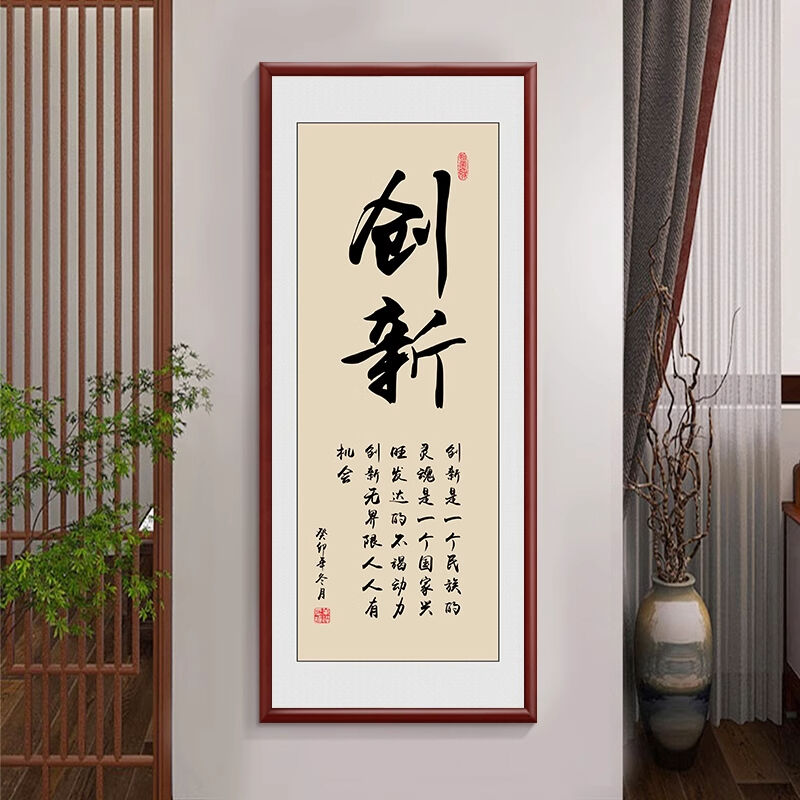 创新
创新是一个民族的
灵魂是一个国家兴
旺发达的不竭动力
创新无界限人人有
机会
癸卯年冬月